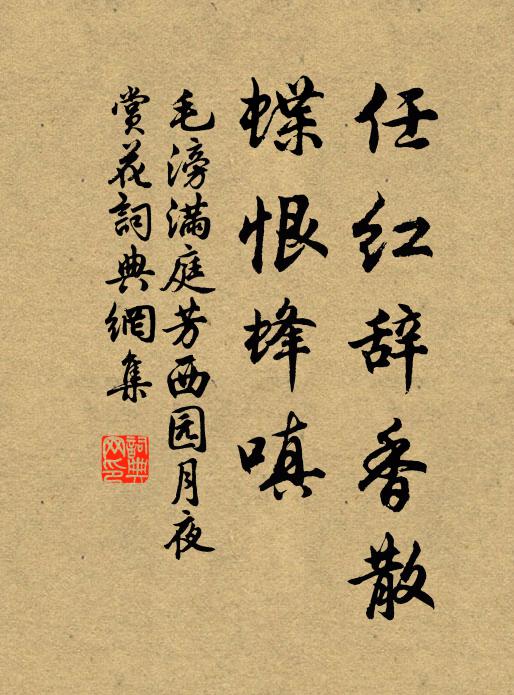 任红辞香散
蝶恨蜂嗔
毛滂满庭芳西园月夜
赏花詞典網集
詞典网印